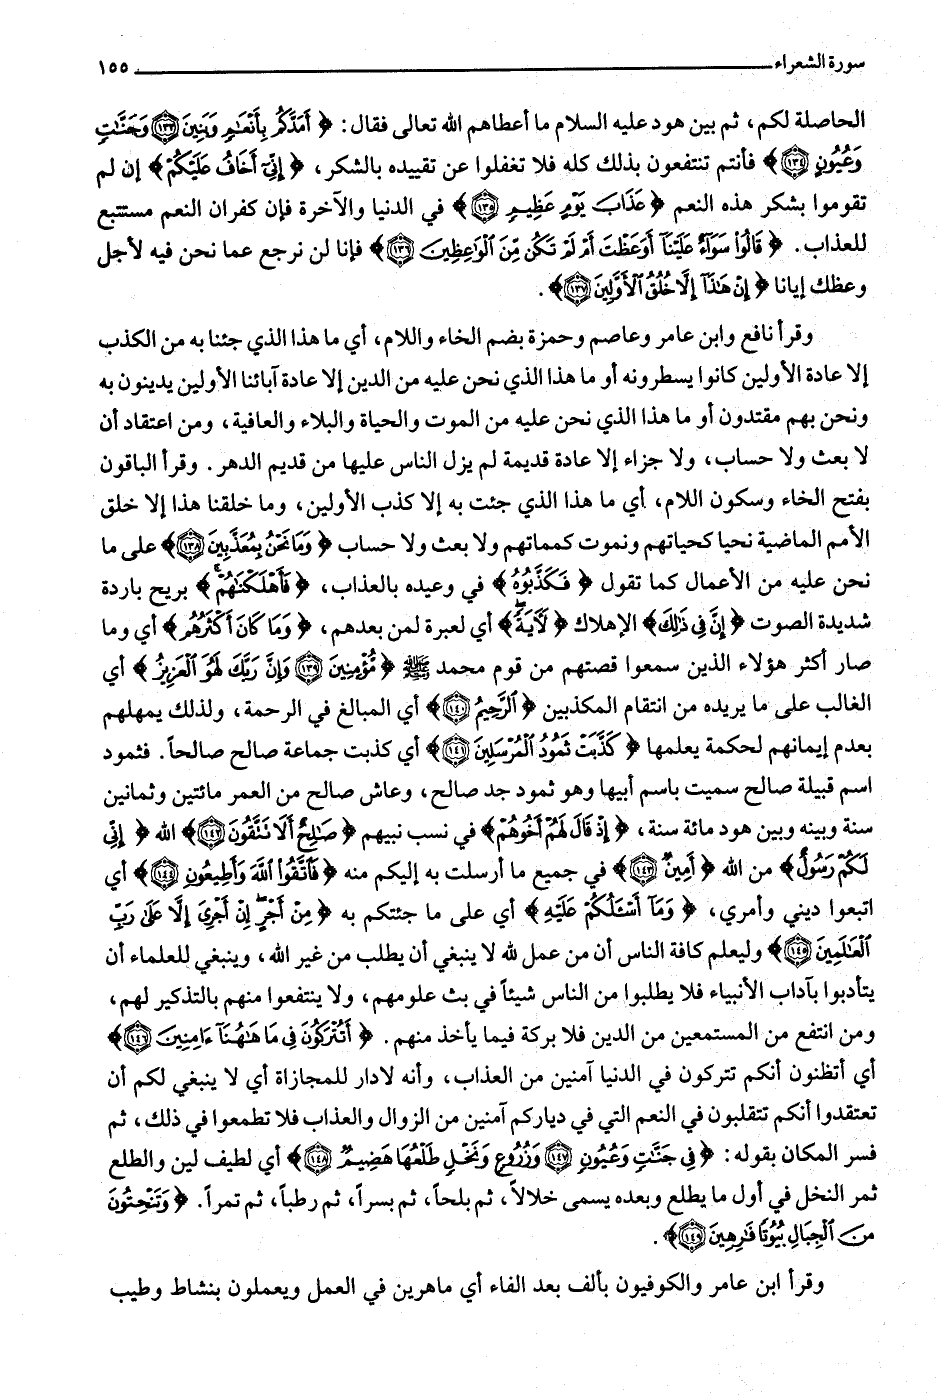 سورة الشعراء ١٥٥
الحاصلة لكم، ثم بين هود عليه السلام ما أعطاهم الله تعالى فقال: ﴿ أَمَدَّكُم بِأَنْعَٰمٍ وَبَنِينَ ١٣٣ وَجَنَّٰتٍ
وَعُيُونٍ ١٣٤﴾ فأنتم تنتفعون بذلك كله فلا تغفلوا عن تقييده بالشكر، ﴿ إِنِّىٓ أَخَافُ عَلَيْكُمْ﴾ إن لم
تقوموا بشكر هذه النعم ﴿عَذَابَ يَوْمٍ عَظِيمٍ ١٣٥﴾ في الدنيا والآخرة فإن كفران النعم مستتبع
للعذاب. ﴿ قَالُوا۟ سَوَآءٌ عَلَيْنَآ أَوَعَظْتَ أَمْ لَمْ تَكُن مِّنَ ٱلْوَٰعِظِينَ ١٣٦﴾ فإنا لن نرجع عما نحن فيه لأجل
وعظك إيانا ﴿ إِنْ هَٰذَآ إِلَّا خُلُقُ ٱلْأَوَّلِينَ ١٣٧﴾.
وقرأ نافع وابن عامر وعاصم وحمزة بضم الخاء واللام، أي ما هذا الذي جئنا به من الكذب
إلا عادة الأولين كانوا يسطرونه أو ما هذا الذي نحن عليه من الدين إلا عادة آبائنا الأولين يدينون به
ونحن بهم مقتدون أو ما هذا الذي نحن عليه من الموت والحياة والبلاء والعافية، ومن اعتقاد أن
لا بعث ولا حساب، ولا جزاء إلا عادة قديمة لم يزل الناس عليها من قديم الدهر. وقرأ الباقون
بفتح الخاء وسكون اللام، أي ما هذا الذي جئت به إلا كذب الأولين، وما خلقنا هذا إلا خلق
الأمم الماضية نحيا كحياتهم ونموت كمماتهم ولا بعث ولا حساب ﴿ وَمَا نَحْنُ بِمُعَذَّبِينَ ١٣٨﴾ على ما
نحن عليه من الأعمال كما تقول ﴿ فَكَذَّبُوهُ﴾ في وعيده بالعذاب، ﴿ فَأَهْلَكْنَٰهُمْ﴾ بريح باردة
شديدة الصوت ﴿إِنَّ فِى ذَٰلِكَ﴾ الإهلاك ﴿لَءَايَةً﴾ أي لعبرة لمن بعدهم، ﴿ وَمَا كَانَ أَكْثَرُهُم﴾ أي وما
صار أكثر هؤلاء الذين سمعوا قصتهم من قوم محمد ﷺ ﴿ مُّؤْمِنِينَ ١٣٩ وَإِنَّ رَبَّكَ لَهُوَ ٱلْعَزِيزُ﴾ أي
الغالب على ما يريده من انتقام المكذبين ﴿ ٱلرَّحِيمُ ١٤٠﴾ أي المبالغ في الرحمة، ولذلك يمهلهم
بعدم إيمانهم لحكمة يعلمها ﴿ كَذَّبَتْ ثَمُودُ ٱلْمُرْسَلِينَ ١٤١﴾ أي كذبت جماعة صالح صالحاً. فثمود
اسم قبيلة صالح سميت باسم أبيها وهو ثمود جد صالح، وعاش صالح من العمر مائتين وثمانين
سنة وبينه وبين هود مائة سنة، ﴿ إِذْ قَالَ لَهُمْ أَخُوهُمْ﴾ في نسب نبيهم ﴿صَٰلِحٌ أَلَا تَتَّقُونَ ١٤٢﴾ الله ﴿ إِنِّى
لَكُمْ رَسُولٌ﴾ من الله ﴿ أَمِينٌ ١٤٣﴾ في جميع ما أرسلت به إليكم منه ﴿فَٱتَّقُوا۟ ٱللَّهَ وَأَطِيعُونِ ١٤٤﴾ أي
اتبعوا ديني وأمري، ﴿ وَمَآ أَسْـَٔلُكُمْ عَلَيْهِ﴾ أي على ما جئتكم به ﴿مِنْ أَجْرٍ إِنْ أَجْرِىَ إِلَّا عَلَىٰ رَبِّ
ٱلْعَٰلَمِينَ ١٤٥﴾ وليعلم كافة الناس أن من عمل لله لا ينبغي أن يطلب من غير الله، وينبغي للعلماء أن
يتأدبوا بآداب الأنبياء فلا يطلبوا من الناس شيئاً في بث علومهم، ولا ينتفعوا منهم بالتذكير لهم،
ومن انتفع من المستمعين من الدين فلا بركة فيما يأخذ منهم. ﴿ أَتُتْرَكُونَ فِى مَا هَٰهُنَآ ءَامِنِينَ ١٤٦﴾
أي أتظنون أنكم تتركون في الدنيا آمنين من العذاب، وأنه لادار للمجازاة أي لا ينبغي لكم أن
تعتقدوا أنكم تتقلبون في النعم التي في دياركم آمنين من الزوال والعذاب فلا تطمعوا في ذلك، ثم
فسر المكان بقوله: ﴿ فِى جَنَّٰتٍ وَعُيُونٍ ١٤٧ وَزُرُوعٍ وَنَخْلٍ طَلْعُهَا هَضِيمٌ ١٤٨﴾ أي لطيف لين والطلع
ثمر النخل في أول ما يطلع وبعده يسمى خلالاً، ثم بلحاً، ثم بسراً، ثم رطباً، ثم تمراً. ﴿ وَتَنْحِتُونَ
مِنَ ٱلْجِبَالِ بُيُوتًا فَٰرِهِينَ ١٤٩﴾.
وقرأ ابن عامر والكوفيون بألف بعد الفاء أي ماهرين في العمل ويعملون بنشاط وطيب